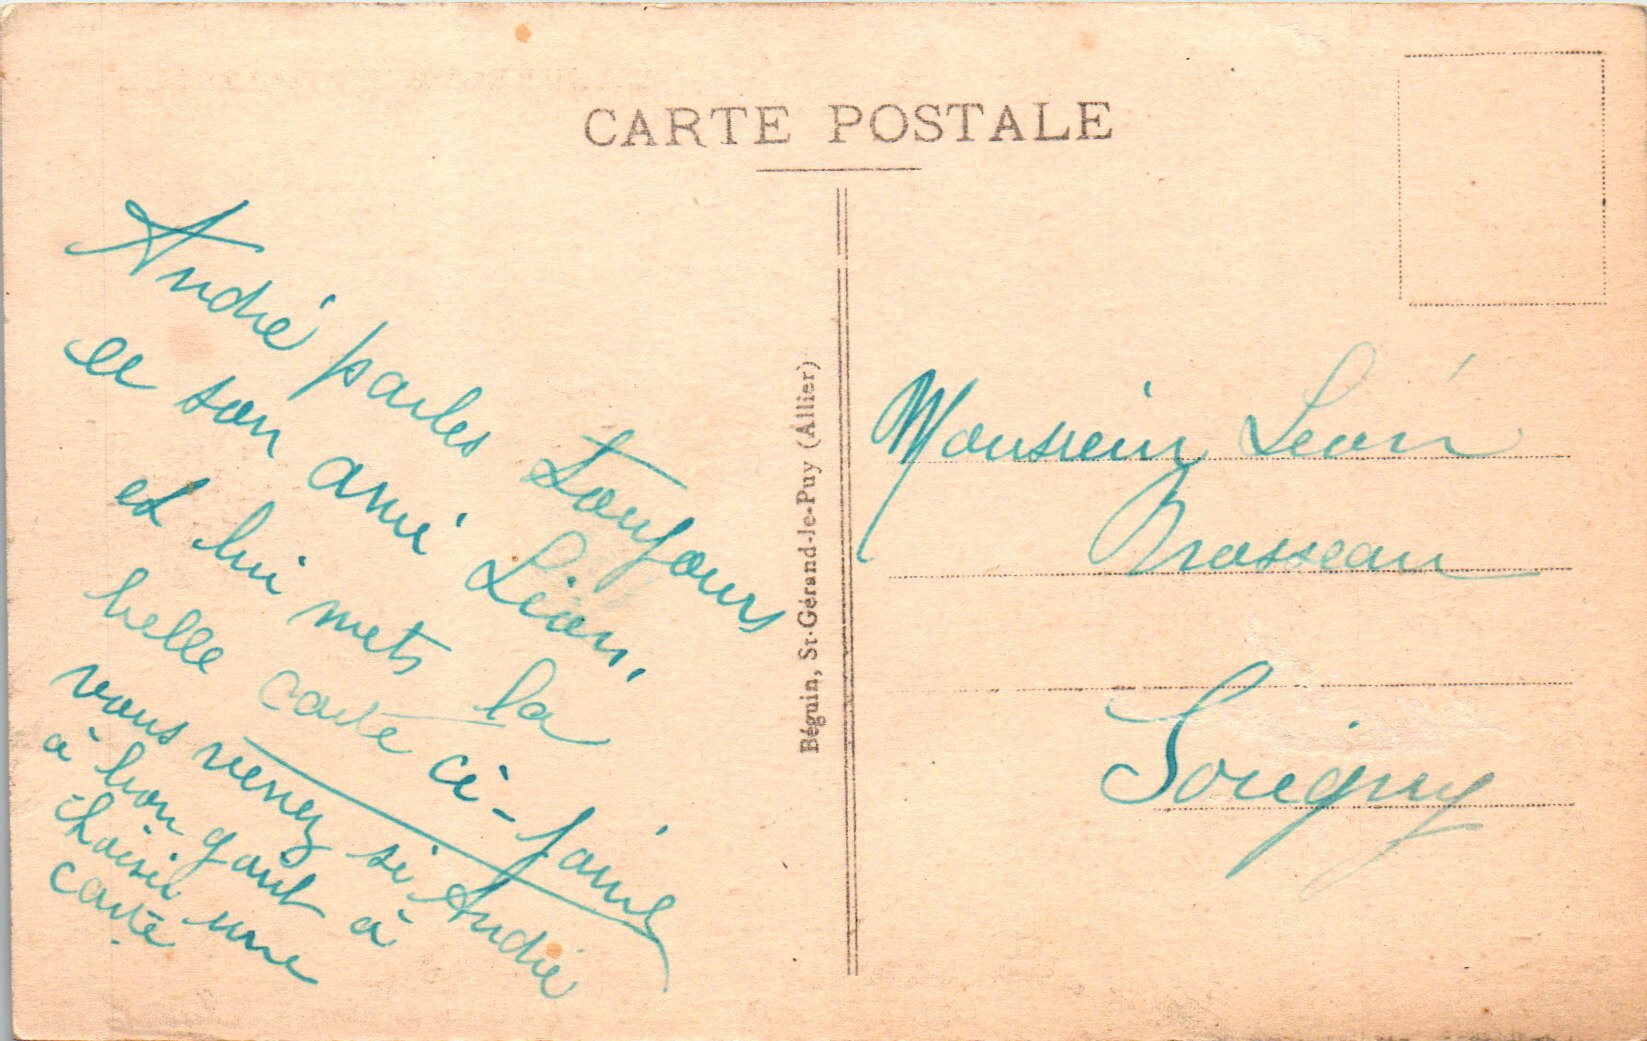 CARTE POSTALE
André parles toujours
de son ami Léon,
et lui mets la
belle carte ci-joint
vous verrez si André
à bon gout à
choisir une
carte
Béguin, St-Gérand-le-Puy (Allier)
Monsieur Léon
Brosseau
Sorigny